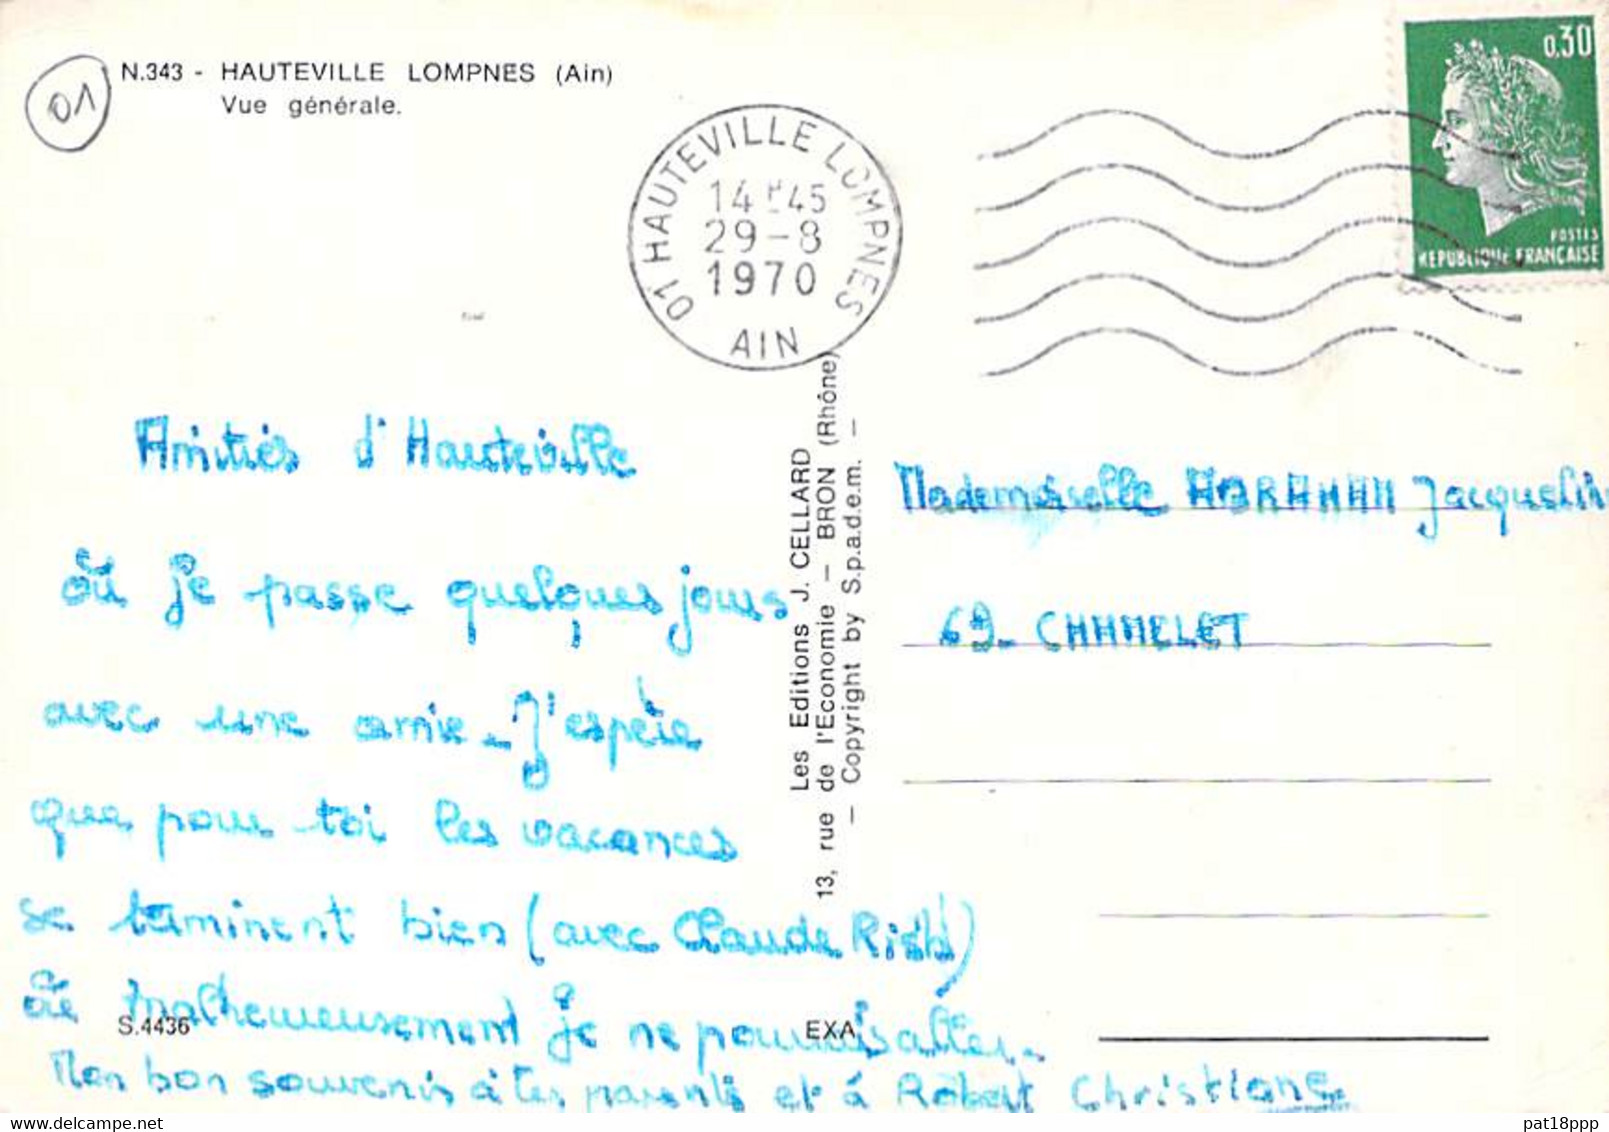 01
N.343 - HAUTEVILLE LOMPNES (Ain)
Vue générale.
01 HAUTEVILLE LOMPNES
14H45
29-8
1970
AIN
0,30
POSTES
REPUBLIQUE FRANÇAISE
Amitiés d'Hauteville
où je passe quelques jours
avec une amie - J'espère
que pour toi les vacances
se terminent bien (avec Claude
où malheureusement je ne pourrais aller -
Mon bon souvenir à tes parents et à Robert Christiane
Les Editions J. CELLARD
13, rue de l'Economie - BRON (Rhône)
- Copyright by S.p.a.d.e.m. -
Mademoiselle ABRAHAM Jacquelin
69 - CHAMELET
S.4436
EXA
pat18ppp